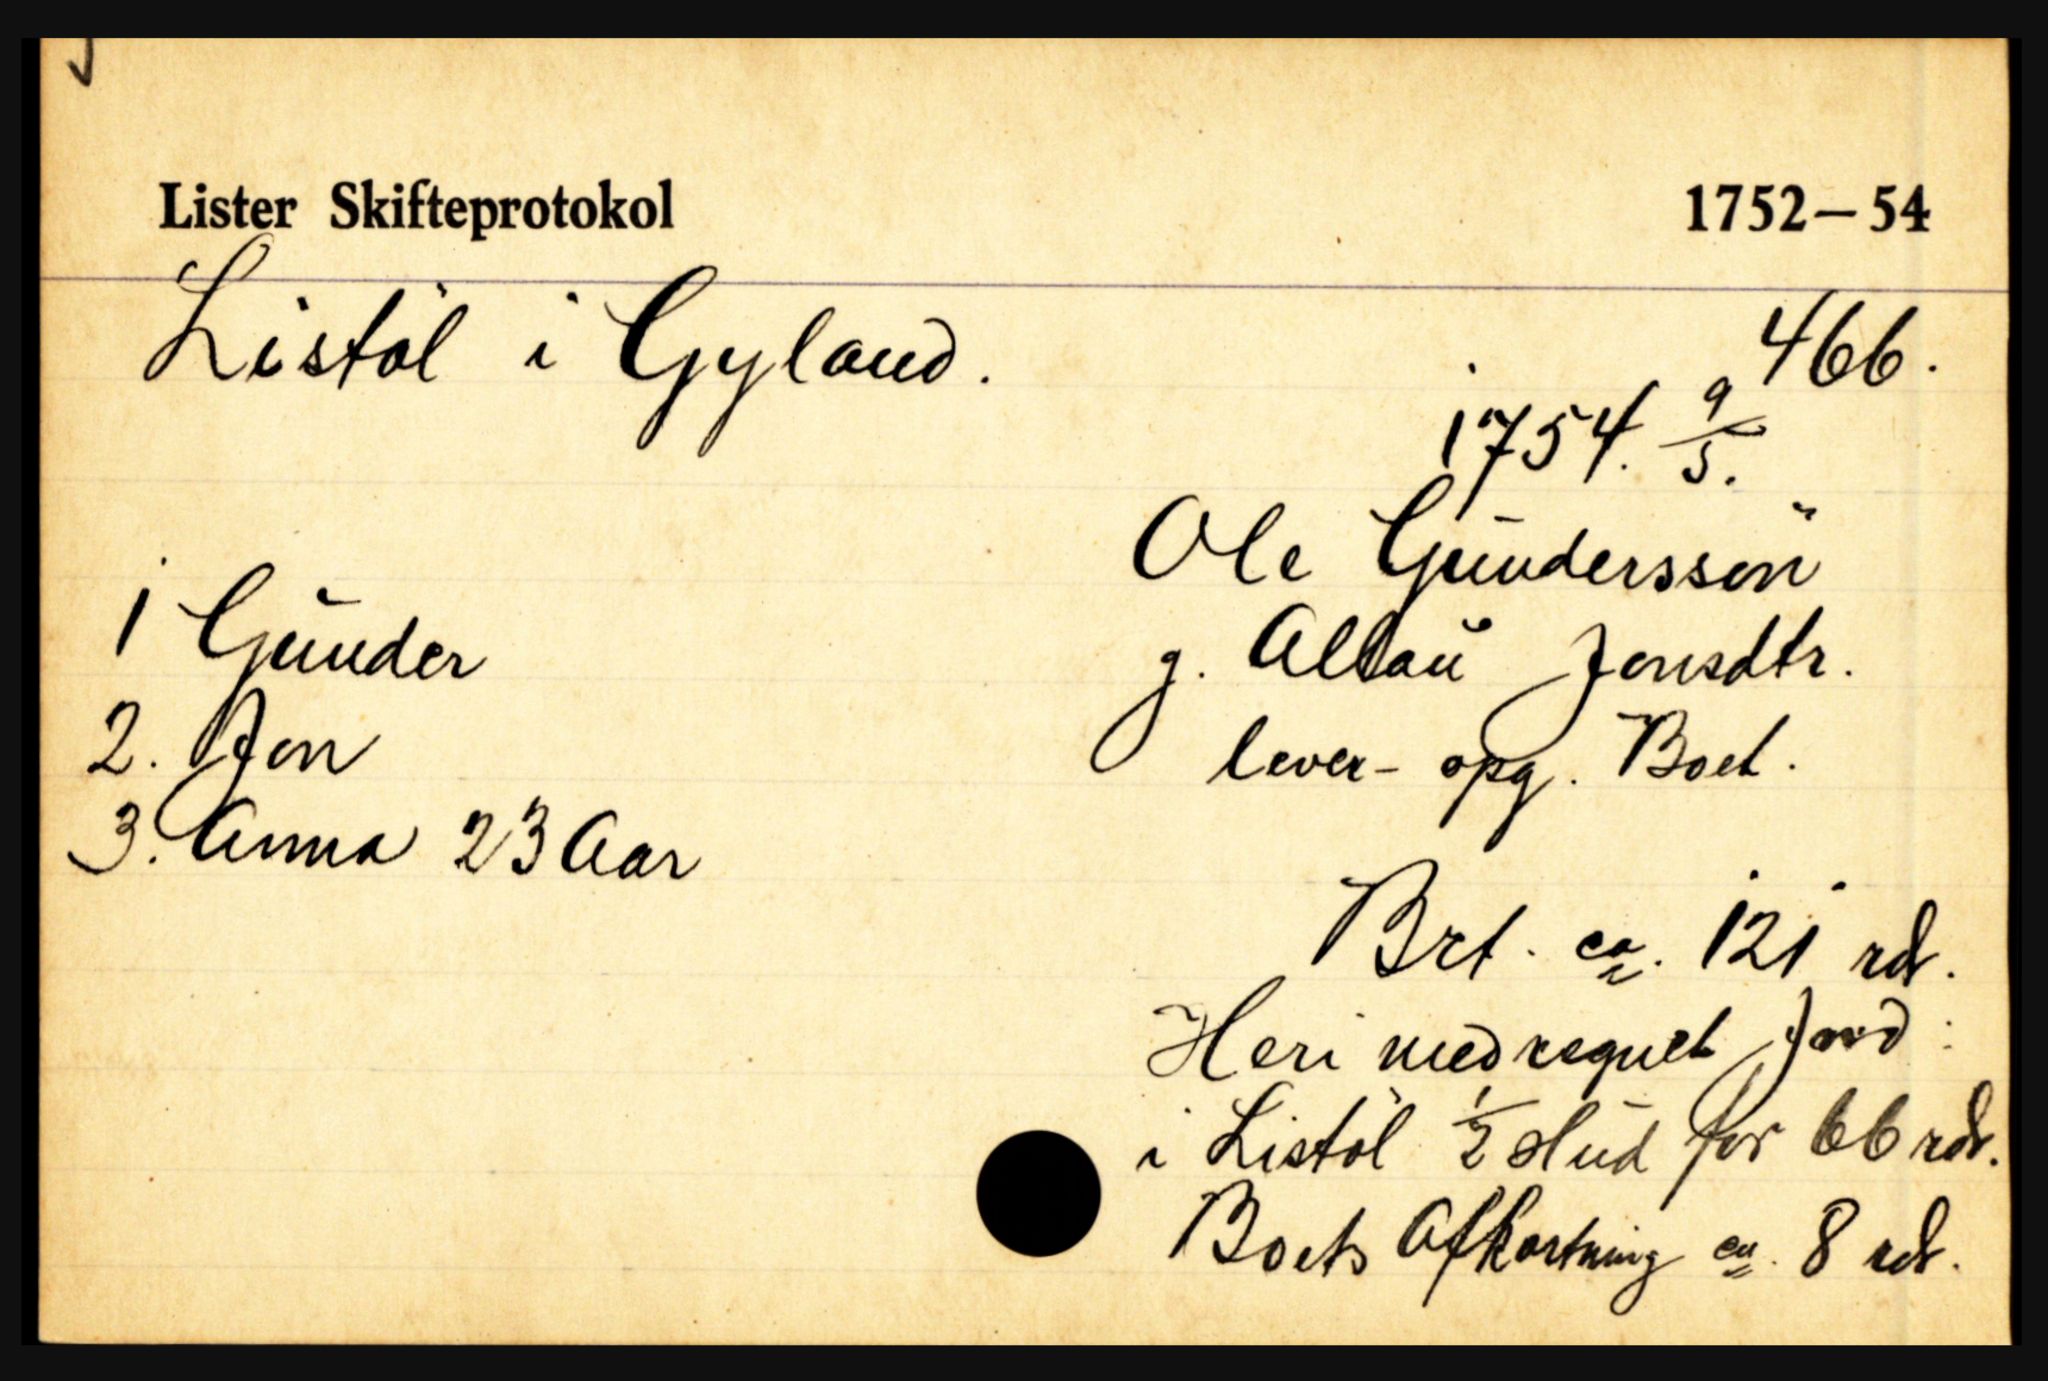 Lister Skifteprotokol 1752-54
Listöl i Gyland.
466.
1754. 9/5.
Ole Gundersson
g. Allau Jonsdtr.
lever - opg. Boet.
1 Gunder
2. Jon
3. Anna 23 Aar
Brt. ca. 121 rdr.
Heri medregnet Jord:
i Listöl 1/2 Hud for 66 rdr.
Boets Afkortning ca. 8 rdr.